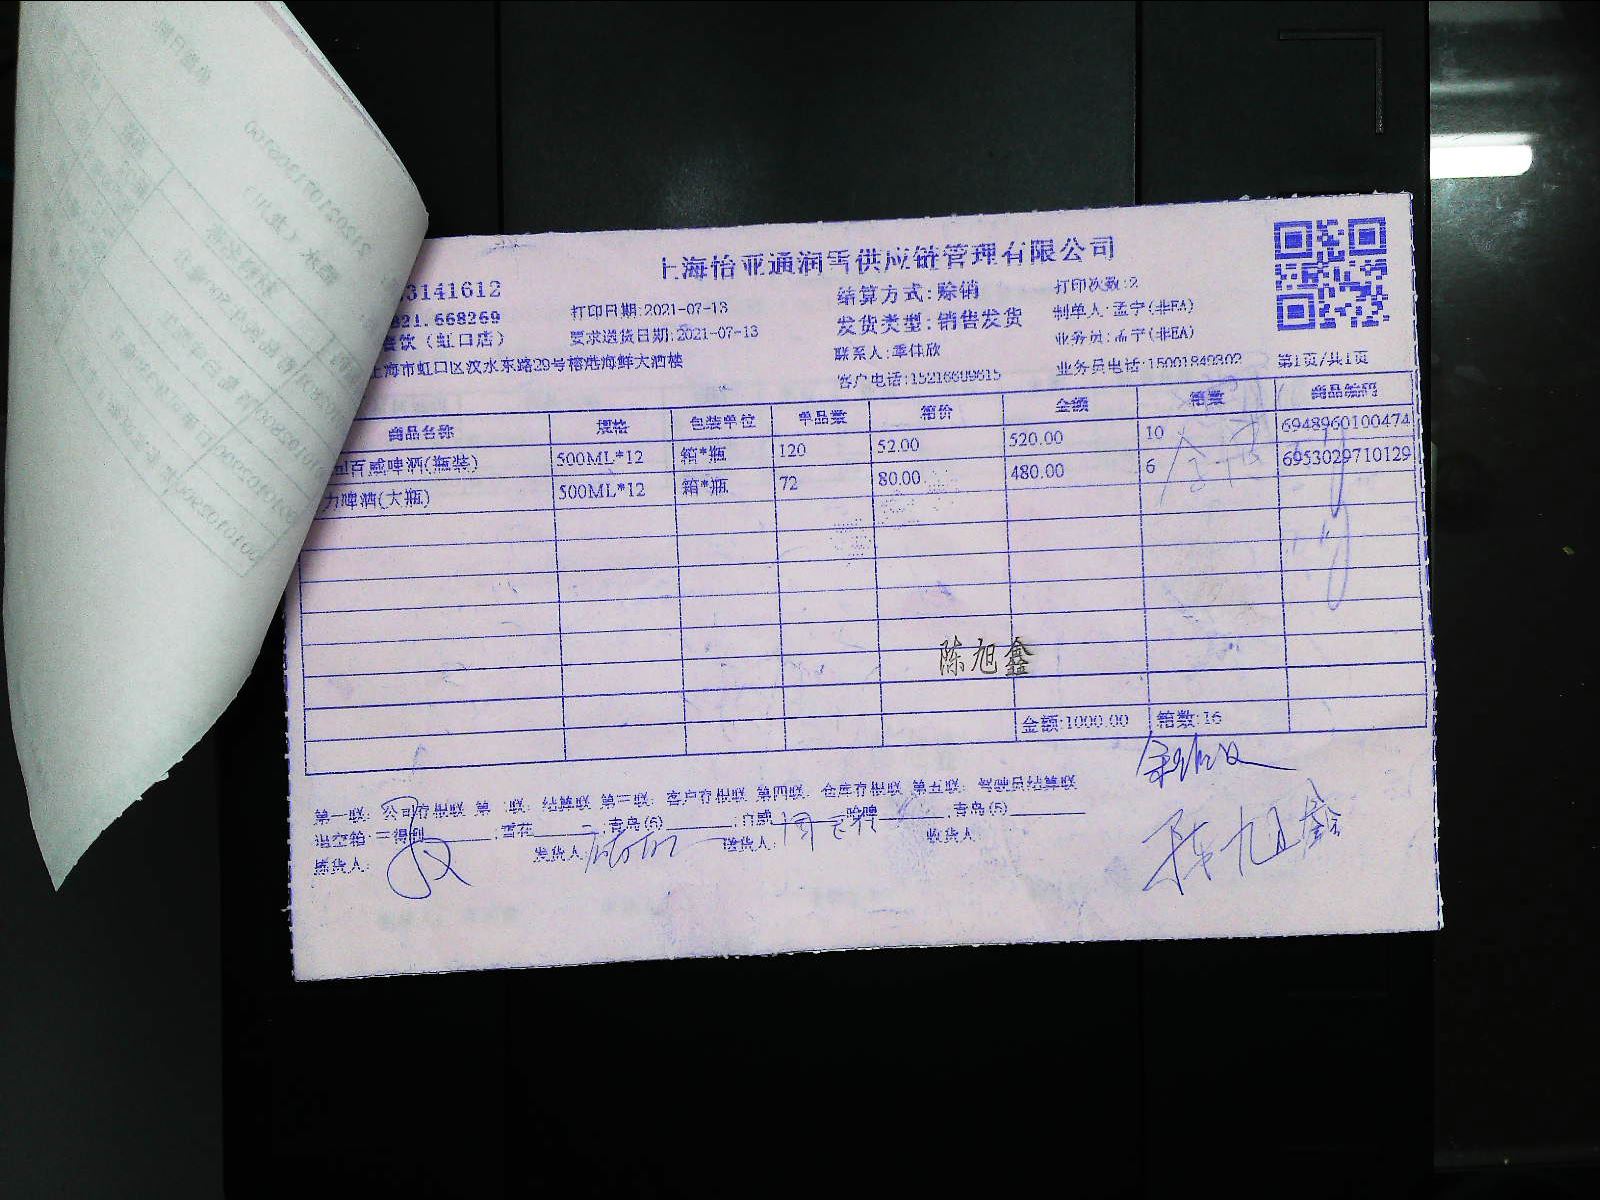 上海怡亚通润雪供应链管理有限公司
3141612
打印日期:2021-07-13
结算方式:赊销
打印次数:2
821.668269
要求送货日期:2021-07-13
发货类型:销售发货
制单人:孟宁(非EA)
餐饮（虹口店）
联系人:季佳欣
业务员:孟宁(非EA)
上海市虹口区汶水东路29号榕港海鲜大酒楼
客户电话:15216609615
业务员电话:15001849302
第1页/共1页
商品名称 规格 包装单位 单品数 箱价 金额 箱数 商品编码
百威啤酒(瓶装) 500ML*12 箱*瓶 120 52.00 520.00 10 6948960100474
力啤酒(大瓶) 500ML*12 箱*瓶 72 80.00 480.00 6 6953029710129
陈旭鑫
金额:1000.00 箱数:16
第一联: 公司存根联 第二联: 结算联 第三联: 客户存根联 第四联: 仓库存根联 第五联: 驾驶员结算联
退空箱:三得利 ;雪花 ;青岛(6) ;百威 哈啤 ;青岛(5)
拣货人: 发货人: 送货人: 收货人
陈旭鑫